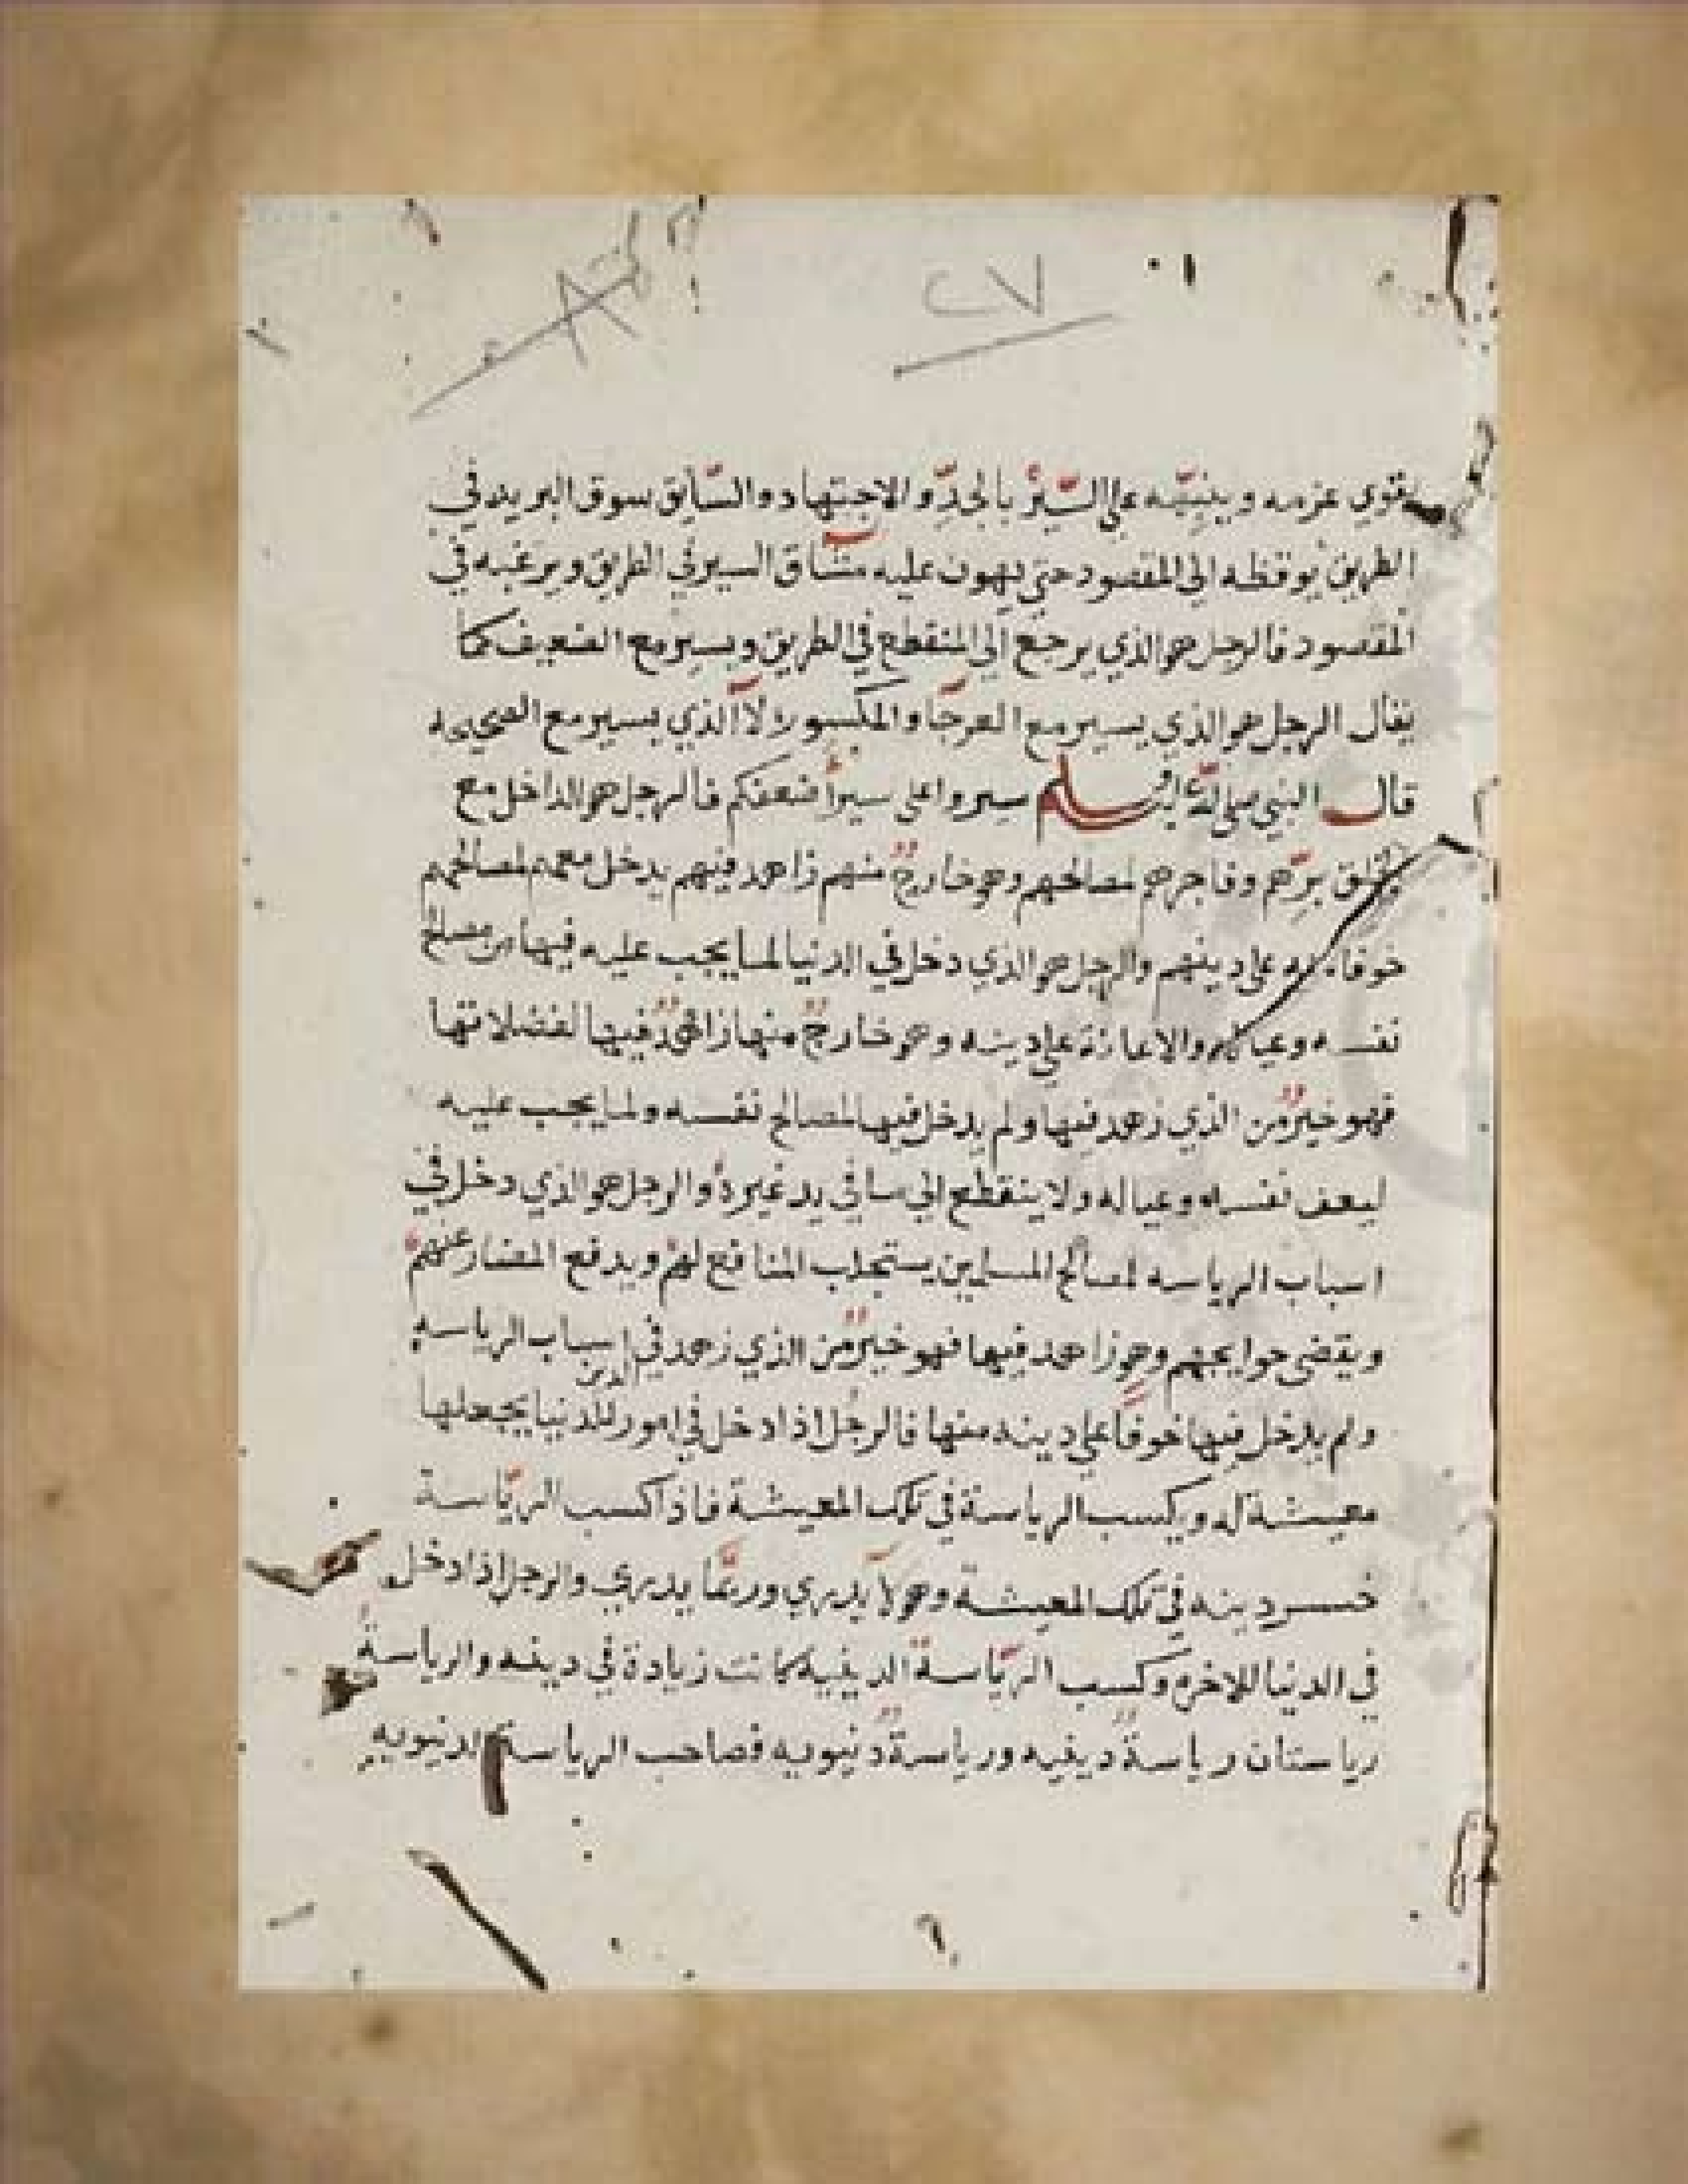 ٢٧
تقوي عزمه وينبّهه علي السّيرْ بالجدّ والاجتهاد والسّايق سوق البريد في
الطريق يوقظه الي المقصود حتي يهون عليه مشآق السير في الطريق ويرغبه في
المقصود فالرجل هو الذي يرجع الي المنقطع في الطريق ويسير مع الضعيف كما
يقال الرجل هو الذي يسير مع العرجآ والمكسور لآ الذي يسير مع الصحيحه
قال النبي صلى الله عليه وسلم سيروا على سير أضعفكم فالرجل هو الداخل مع
الخلق برّهم وفاجرهم لمصالحهم وهو خارجٌ منهم زاهد فيهم يدخل معهم لمصالحهم
خوفا على دينهم والرجل هو الذي دخل في الدنيا لما يجب عليه فيها من مصالح
نفسه وعياله والاعانة علي دينه وهو خارجٌ منها زاهدٌ فيها لفضلاتها
فهو خيرٌ من الذي زهد فيها ولم يدخل فيها لمصالح نفسه ولما يجب عليه
ليعف نفسه وعياله ولا ينقطع الي ما في يد غيره والرجل هو الذي دخل في
اسباب الرياسه لمصالح المسلمين يستجلب المنافع لهم ويدفع المضار عنهم
ويقضي حوايجهم وهو زاهد فيها فهو خيرٌ من الذي زهد في اسباب الرياسه
ولم يدخل فيها خوفاً علي دينه منها فالرجل اذا دخل في امور الدين للدنيا يجعلها
معيشة له ويكسب الرياسة في تلك المعيشة فاذا كسب الريّاسة
خسر دينه في تلك المعيشة وهو لآ يدري وربّما يدري والرجل اذا دخل
في الدنيا للاخره وكسب الريّاسة الدينية كانت زيادة في دينه والرياسة
رياستان رياسةٌ دينيه ورياسةٌ دنيويه فصاحب الرياسة الدنيويه